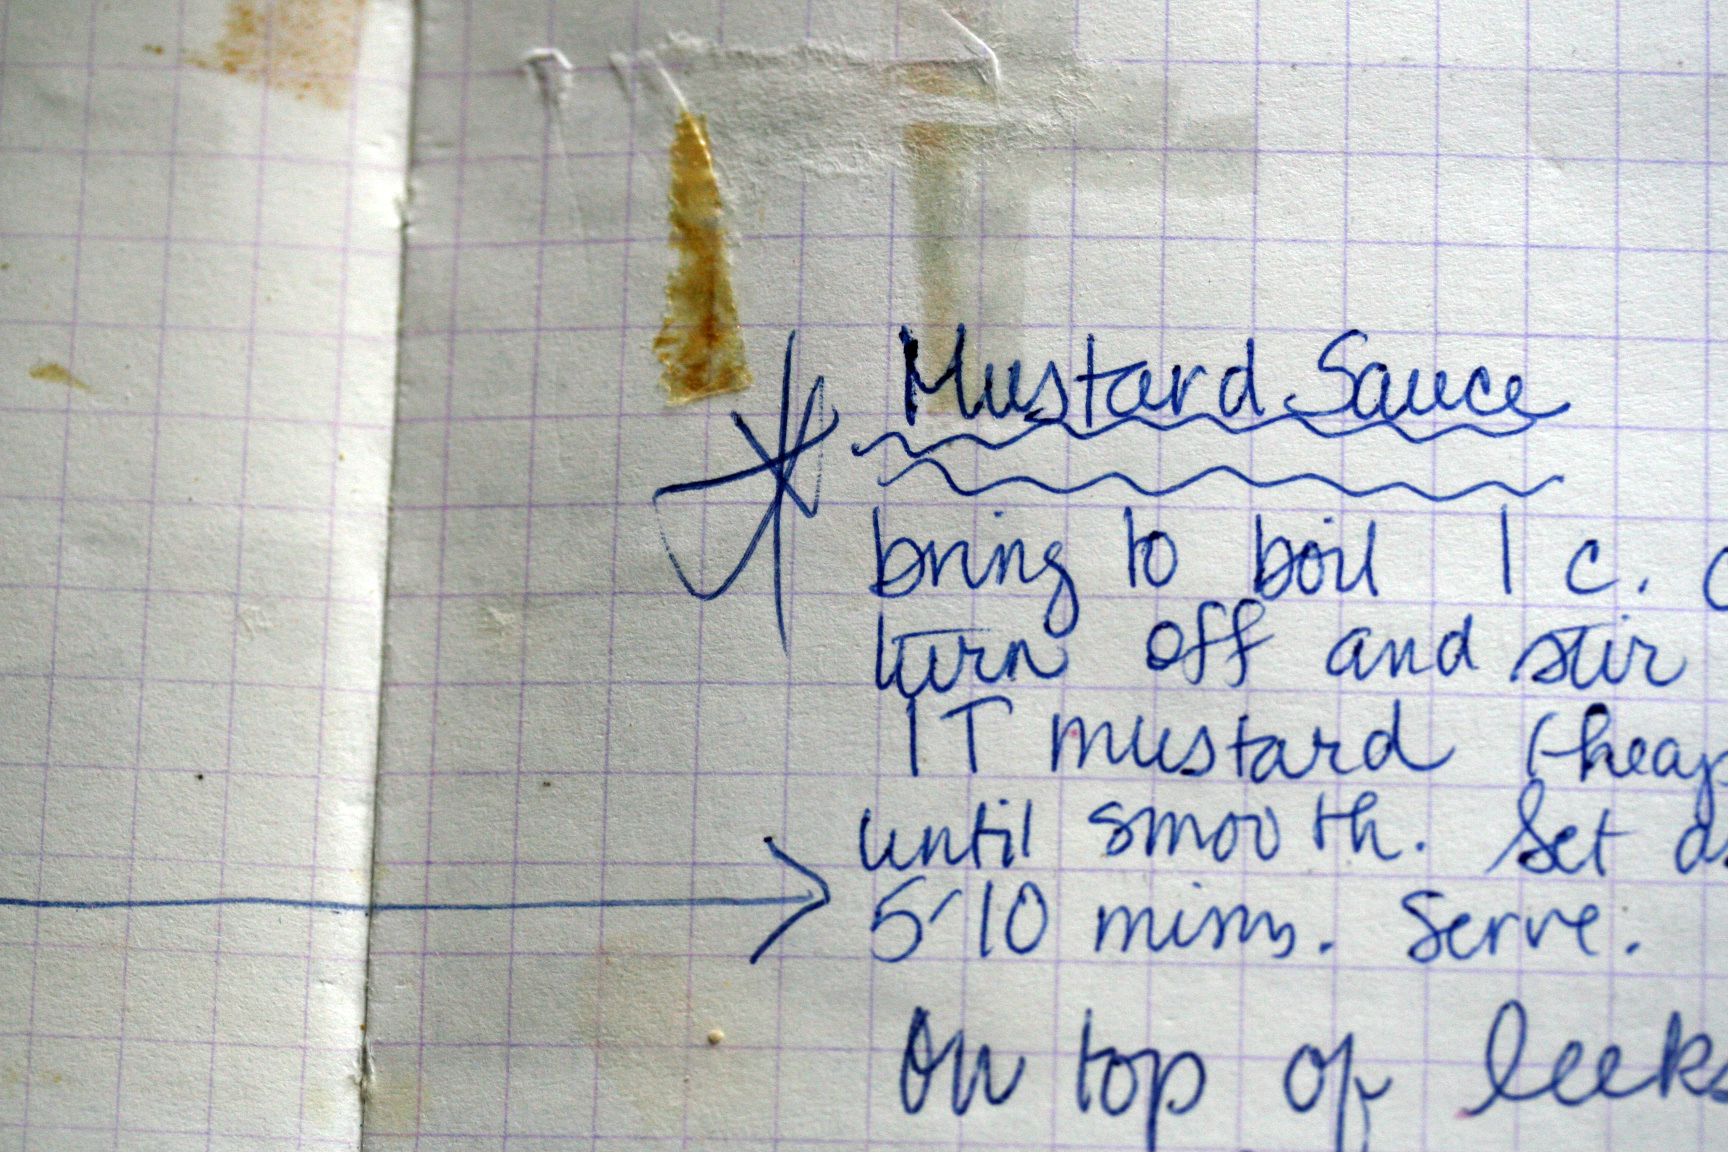 Mustard Sauce
bring to boil 1 c.
turn off and stir
1 T mustard (heap
until smooth. Set
5-10 mins. Serve.
On top of leeks